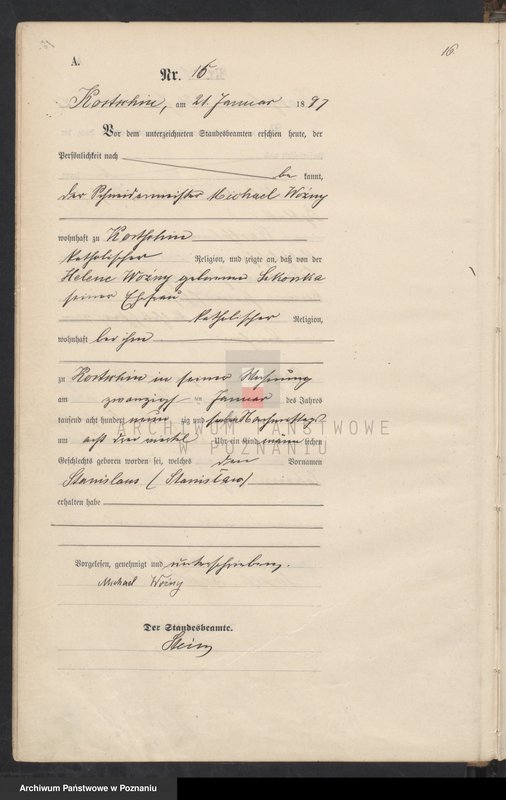 16
A.
Nr. 16
Kostschin, am 21. Januar 1897
Vor dem unterzeichneten Standesbeamten erschien heute, der
Persönlichkeit nach
be kannt,
der Schneidermeister Michael Woźny
wohnhaft zu Kostschin
katholischer Religion, und zeigte an, daß von der
Helene Woźny geborenen
seiner Ehefrau
katholischer Religion,
wohnhaft bei ihm
zu Kostschin in seiner Wohnung
am zwanzigsten Januar des Jahres
tausend acht hundert neun zig und sieben Nachmittags
um acht drei viertel Uhr ein Kind männ lichen
Geschlechts geboren worden sei, welches den Vornamen
Stanislaus (Stanisław)
erhalten habe
Vorgelesen, genehmigt und unterschrieben.
Michael Woźny
Der Standesbeamte.
ARCHIWUM PAŃSTWOWE
W POZNANIU
Archiwum Państwowe w Poznaniu